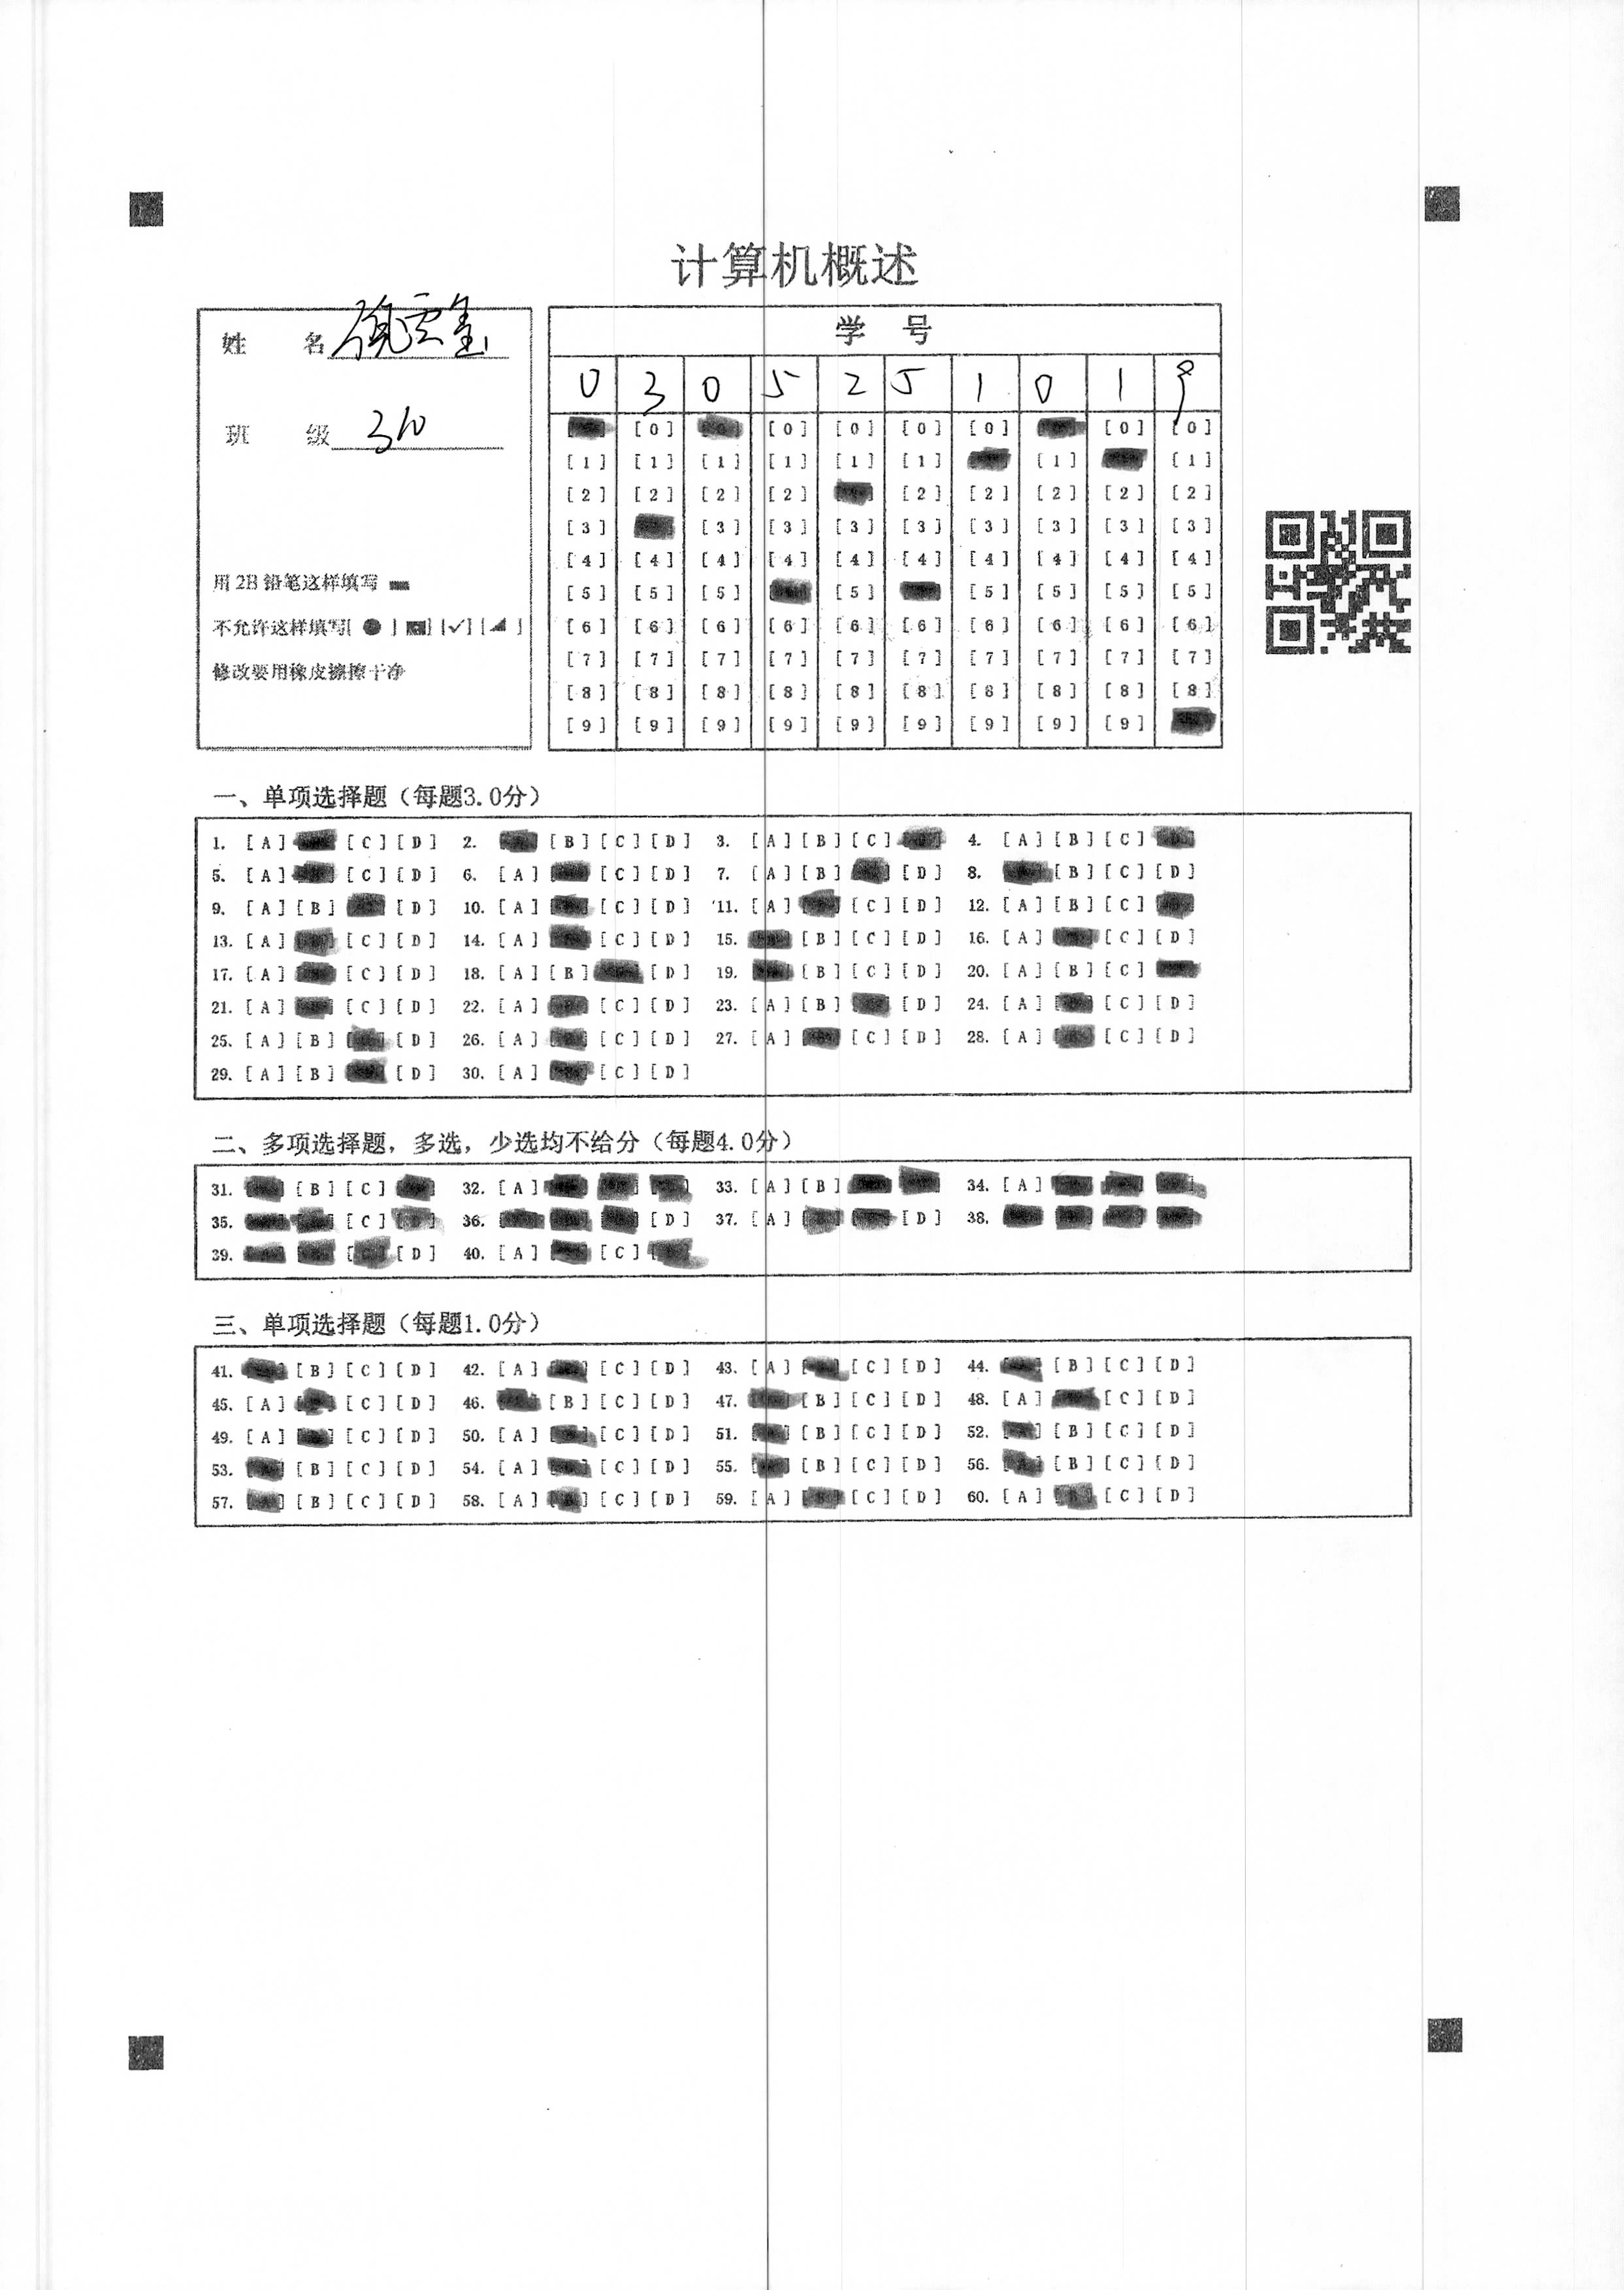 计算机概述
姓 名
班 级 310
用 2B 铅笔这样填写
不允许这样填写[ ● ] [ ] [✓] [ ]
修改要用橡皮擦擦干净
学 号
0 3 0 5 2 5 1 0 1 9
[0] [0] [0] [0] [0] [0] [0]
[1] [1] [1] [1] [1] [1] [1] [1]
[2] [2] [2] [2] [2] [2] [2] [2] [2]
[3] [3] [3] [3] [3] [3] [3] [3] [3]
[4] [4] [4] [4] [4] [4] [4] [4] [4] [4]
[5] [5] [5] [5] [5] [5] [5] [5]
[6] [6] [6] [6] [6] [6] [6] [6] [6] [6]
[7] [7] [7] [7] [7] [7] [7] [7] [7] [7]
[8] [8] [8] [8] [8] [8] [8] [8] [8] [8]
[9] [9] [9] [9] [9] [9] [9] [9] [9]
一、单项选择题（每题3.0分）
1. [A] [C] [D] 2. [B] [C] [D] 3. [A] [B] [C] 4. [A] [B] [C]
5. [A] [C] [D] 6. [A] [C] [D] 7. [A] [B] [D] 8. [B] [C] [D]
9. [A] [B] [D] 10. [A] [C] [D] 11. [A] [C] [D] 12. [A] [B] [C]
13. [A] [C] [D] 14. [A] [C] [D] 15. [B] [C] [D] 16. [A] [C] [D]
17. [A] [C] [D] 18. [A] [B] [D] 19. [B] [C] [D] 20. [A] [B] [C]
21. [A] [C] [D] 22. [A] [C] [D] 23. [A] [B] [D] 24. [A] [C] [D]
25. [A] [B] [D] 26. [A] [C] [D] 27. [A] [C] [D] 28. [A] [C] [D]
29. [A] [B] [D] 30. [A] [C] [D]
二、多项选择题，多选，少选均不给分（每题4.0分）
31. [B] [C] 32. [A] 33. [A] [B] 34. [A]
35. [C] 36. [D] 37. [A] [D] 38.
39. [D] 40. [A] [C]
三、单项选择题（每题1.0分）
41. [B] [C] [D] 42. [A] [C] [D] 43. [A] [C] [D] 44. [B] [C] [D]
45. [A] [C] [D] 46. [B] [C] [D] 47. [B] [C] [D] 48. [A] [C] [D]
49. [A] [C] [D] 50. [A] [C] [D] 51. [B] [C] [D] 52. [B] [C] [D]
53. [B] [C] [D] 54. [A] [C] [D] 55. [B] [C] [D] 56. [B] [C] [D]
57. [B] [C] [D] 58. [A] [C] [D] 59. [A] [C] [D] 60. [A] [C] [D]